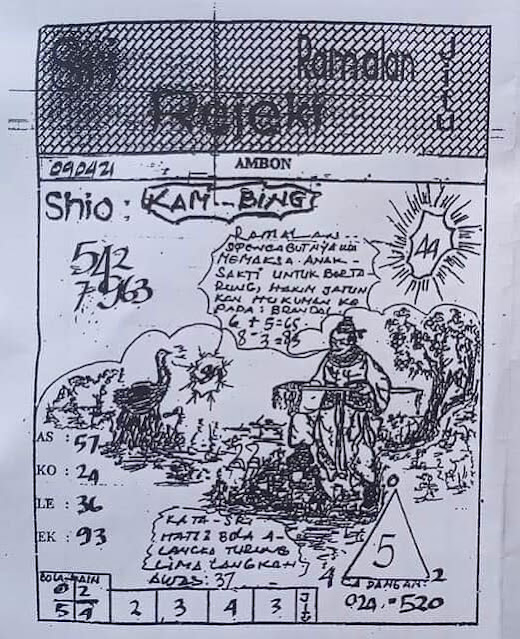 Ramalan
JITU
Rejeki
AMBON
090421
Shio : KAM-BING
542
7963
44
RAMALAN..
MEMAKSA. ANAK-
SAKTI UNTUK BERTA
RUNG, HAKIM JATUH
KAN HUKUMAN KE
PADA: BRANDAL
6 + 5 = 65
8 - 3 = 83
AS : 57
KO : 24
LE : 36
EK : 93
KATA-SRI
HATI2 BOLA A-
LANGKA TURUNG
LIMA LANGKAH
AWAS: 37
0
5
4
2
CADANGAN:
024 = 520
BOLA MAIN
0 2
5 4
2 3 4 3 JITU